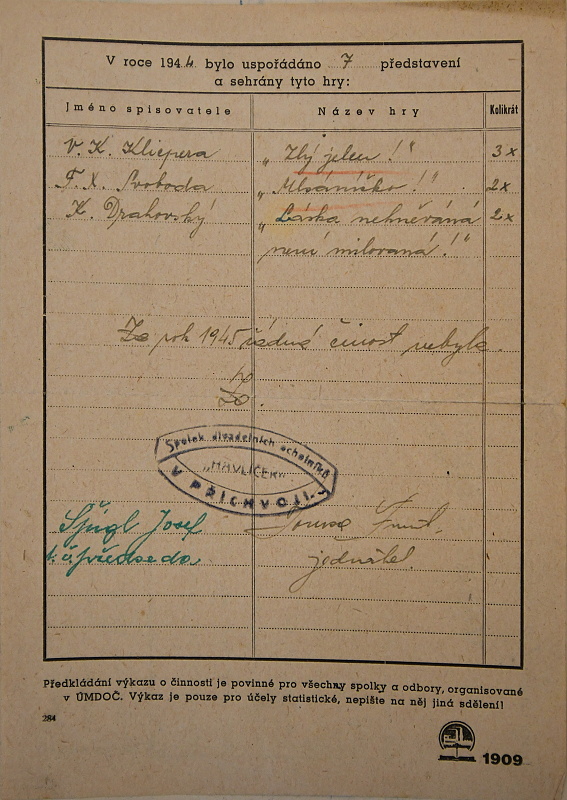 V roce 1944 bylo uspořádáno 7 představení
a sehrány tyto hry:
Jméno spisovatele Název hry Kolikrát
V. K. Klicpera „Zlý jelen!“ 3x
F. X. Svoboda „Mlsáníčko!“ 2x
K. Drahovský „Láska nehněvaná 2x
není milovaná!“
Za rok 1945 žádná činost nebyla.
Spolek divadelních ochotníků
„HAVLÍČEK“
V PŘÍCHVOJI
Josef
předseda jednatel.
Předkládání výkazu o činnosti je povinné pro všechny spolky a odbory, organisované
v ÚMDOČ. Výkaz je pouze pro účely statistické, nepište na něj jiná sdělení!
284
1909